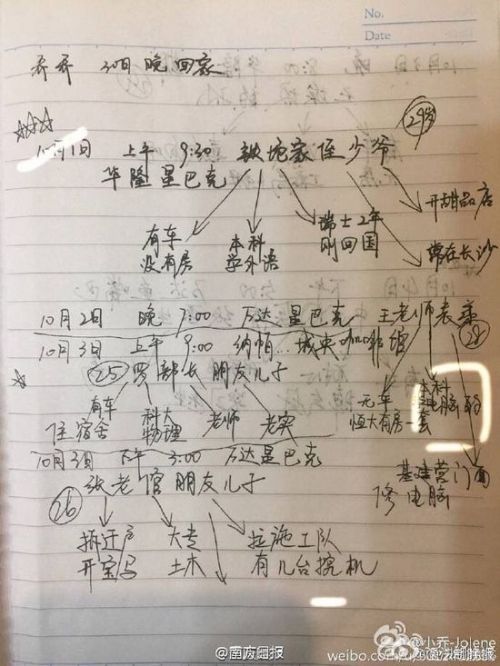 No.
Date
乔乔 30日 晚 回家
10月1日 上午 9:30 家侄少爷 29岁
华隆星巴克
有车
没有房
本科
学外语
瑞士2年
刚回国
开甜品店
常在长沙
10月2日 晚 7:00 万达星巴克 王老师表弟 28
10月3日 上午 9:00 纳帕... 城央咖啡馆
25 罗部长 朋友儿子
有车
住宿舍
科大
物理
老师
老实
无车
恒大有房一套
本科
电脑
基建营门面
修电脑
10月3日 下午 3:00 万达星巴克
张老馆 朋友儿子
26
拆迁户
开宝马
大专
土木
拉施工队
有几台挖机
南方日报
@小乔-Jolene
weibo.com/u